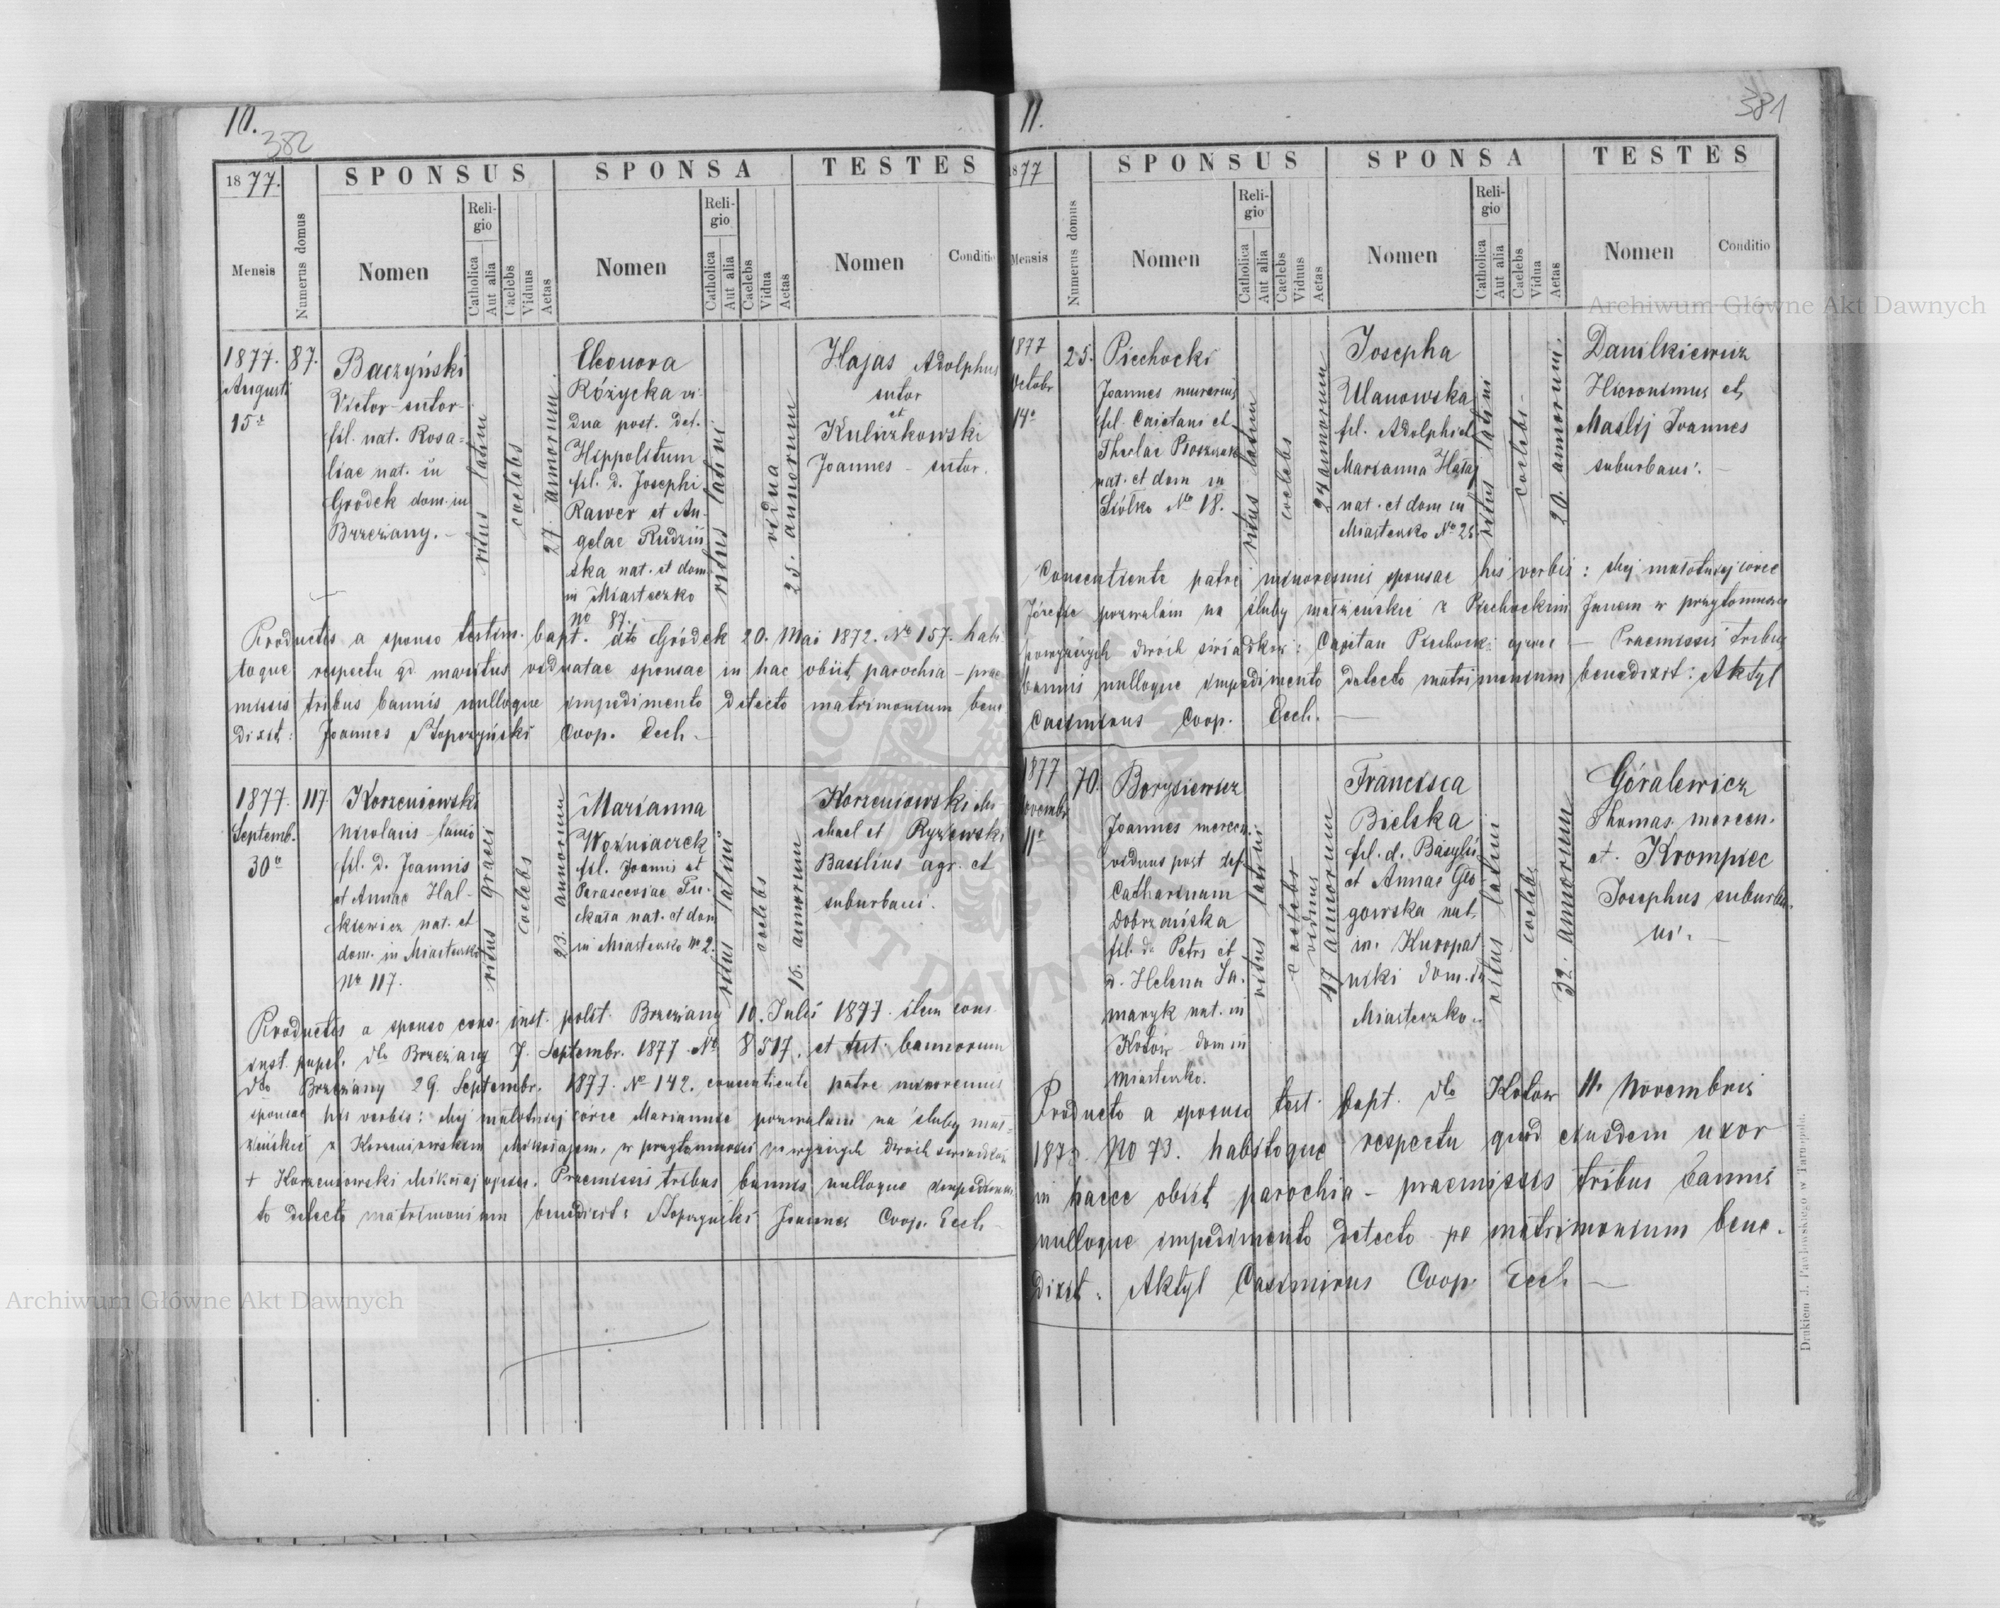 10.
382
1877.
SPONSUS
SPONSA
TESTES
Mensis
Numerus domus
Nomen
Religio
Catholica
Aut alia
Caelebs
Viduus
Aetas
Nomen
Religio
Catholica
Aut alia
Caelebs
Vidua
Aetas
Nomen
Conditio
1877.
Augusti
15a
87.
Baczyński
Victor - sutor -
fil. nat. Rosa=
liae nat. in
Gródek dom. in
Brzeżany. -
ritus latini
coelebs
27. annorum.
Eleonora
Różycka vi-
dua post. def.
Hippolitum
fil. d. Josephi
Rawer et An-
gelae Rudziń
ska nat. et dom.
in Miasteczko
No 87.
ritus latini
vidua
25. annorum
Hajas Adolphus
sutor
et
Kuliczkowski
Joannes - sutor.
Productis a sponso testim. bapt. dto Gródek 20. Mai 1872. No 157. habi
toque respectu qd. maritus viduatae sponsae in hac obiit parochia - prae
missis tribus bannis nulloque impedimento detecto matrimonium bene
dixit: Joannes Stopczyński Coop. Eccl. -
1877.
Septemb.
30a
117.
Korzeniowski
Nicolaus - lanio
fil. d. Joannis
et Annae Hal-
kiewicz nat. et
dom. in Miasteczko
No 117.
ritus graeci
coelebs
23. annorum
Marianna
Woźniaczek
fil. Joannis et
Parasceviae
nat. et dom
in Miasteczko No 2.
ritus latini
coelebs
16. annorum
Korzeniowski Mi
chael et Ryzewski
Basilius agr. et
suburbani.
Productis a sponso cons. inst. polit. Brzeżany 10. Julii 1877. item cons.
inst. pupil. dto Brzeżany 7. Septembr. 1877. No 8317. et test. bannorum
dto Brzeżany 29. Septembr. 1877. No 142. consentiente patre minorennis
sponsae his verbis: Mej małoletniej córce Mariannie pozwalam na śluby mał=
żeńskie z Korzeniowskim Mikołajem, w przytomności powyższych dwóch świadków
+ Korzeniowski Mikołaj ojciec. Praemissis tribus bannis nulloque impedimen
to detecto matrimonium benedixit: Stopczyński Joannes Coop. Eccl. -
11.
381
1877
SPONSUS
SPONSA
TESTES
Mensis
Numerus domus
Nomen
Religio
Catholica
Aut alia
Caelebs
Viduus
Aetas
Nomen
Religio
Catholica
Aut alia
Caelebs
Vidua
Aetas
Nomen
Conditio
1877
Octobr
14a
25.
Piechocki
Joannes murarius
fil. Caietani et
Theclae
nat. et dom in
Siółko No 18.
ritus latini
coelebs
24 annorum
Josepha
Ulanowska
fil. Adolphi et
Marianna Hałaj
nat. et dom in
Miasteczko No 25
ritus latini
coelebs -
20. annorum.
Danilkiewicz
Hieronimus et
Maslij Joannes
suburbani. -
Consentiente patre minorennis sponsae his verbis: Mej małoletniej córce
Józefie pozwalam na śluby małżeńskie z Piechockim Janem w przytomności
powyższych dwóch świadków: Cajetan Piechocki ojciec - Praemissis tribus
bannis nulloque impedimento detecto matrimonium benedixit: Aktyl
Casimirus Coop. Eccl. -
1877
Novembr
11a
70.
Borysiewicz
Joannes mercen.
viduus post def.
Catharinam
Dobrzańska
fil. d. Petri et
d. Helena Ta-
maryk nat. in
Kotów dom in
Miasteczko.
ritus latini
coelebs
viduus
47 annorum
Francisca
Bielska
fil. d. Basylii
et Annae Gło
gowska nat.
in. Kuropat
niki dom. in
Miasteczko.
ritus latini
coelebs
32. annorum
Góralewicz
Thomas mercen.
et. Krompiec
Josephus suburba
ni. -
Producto a sponso test. bapt. dto Kotów 11. Novembris
No 73. habitoque respectu quod eiusdem uxor
in hacce obiit parochia - praemissis tribus bannis
nulloque impedimento detecto matrimonium bene-
dixit. Aktyl Casimirus Coop Eccl. -
Drukiem J. Pawłowskiego w Tarnopolu.
Archiwum Główne Akt Dawnych
Archiwum Główne Akt Dawnych